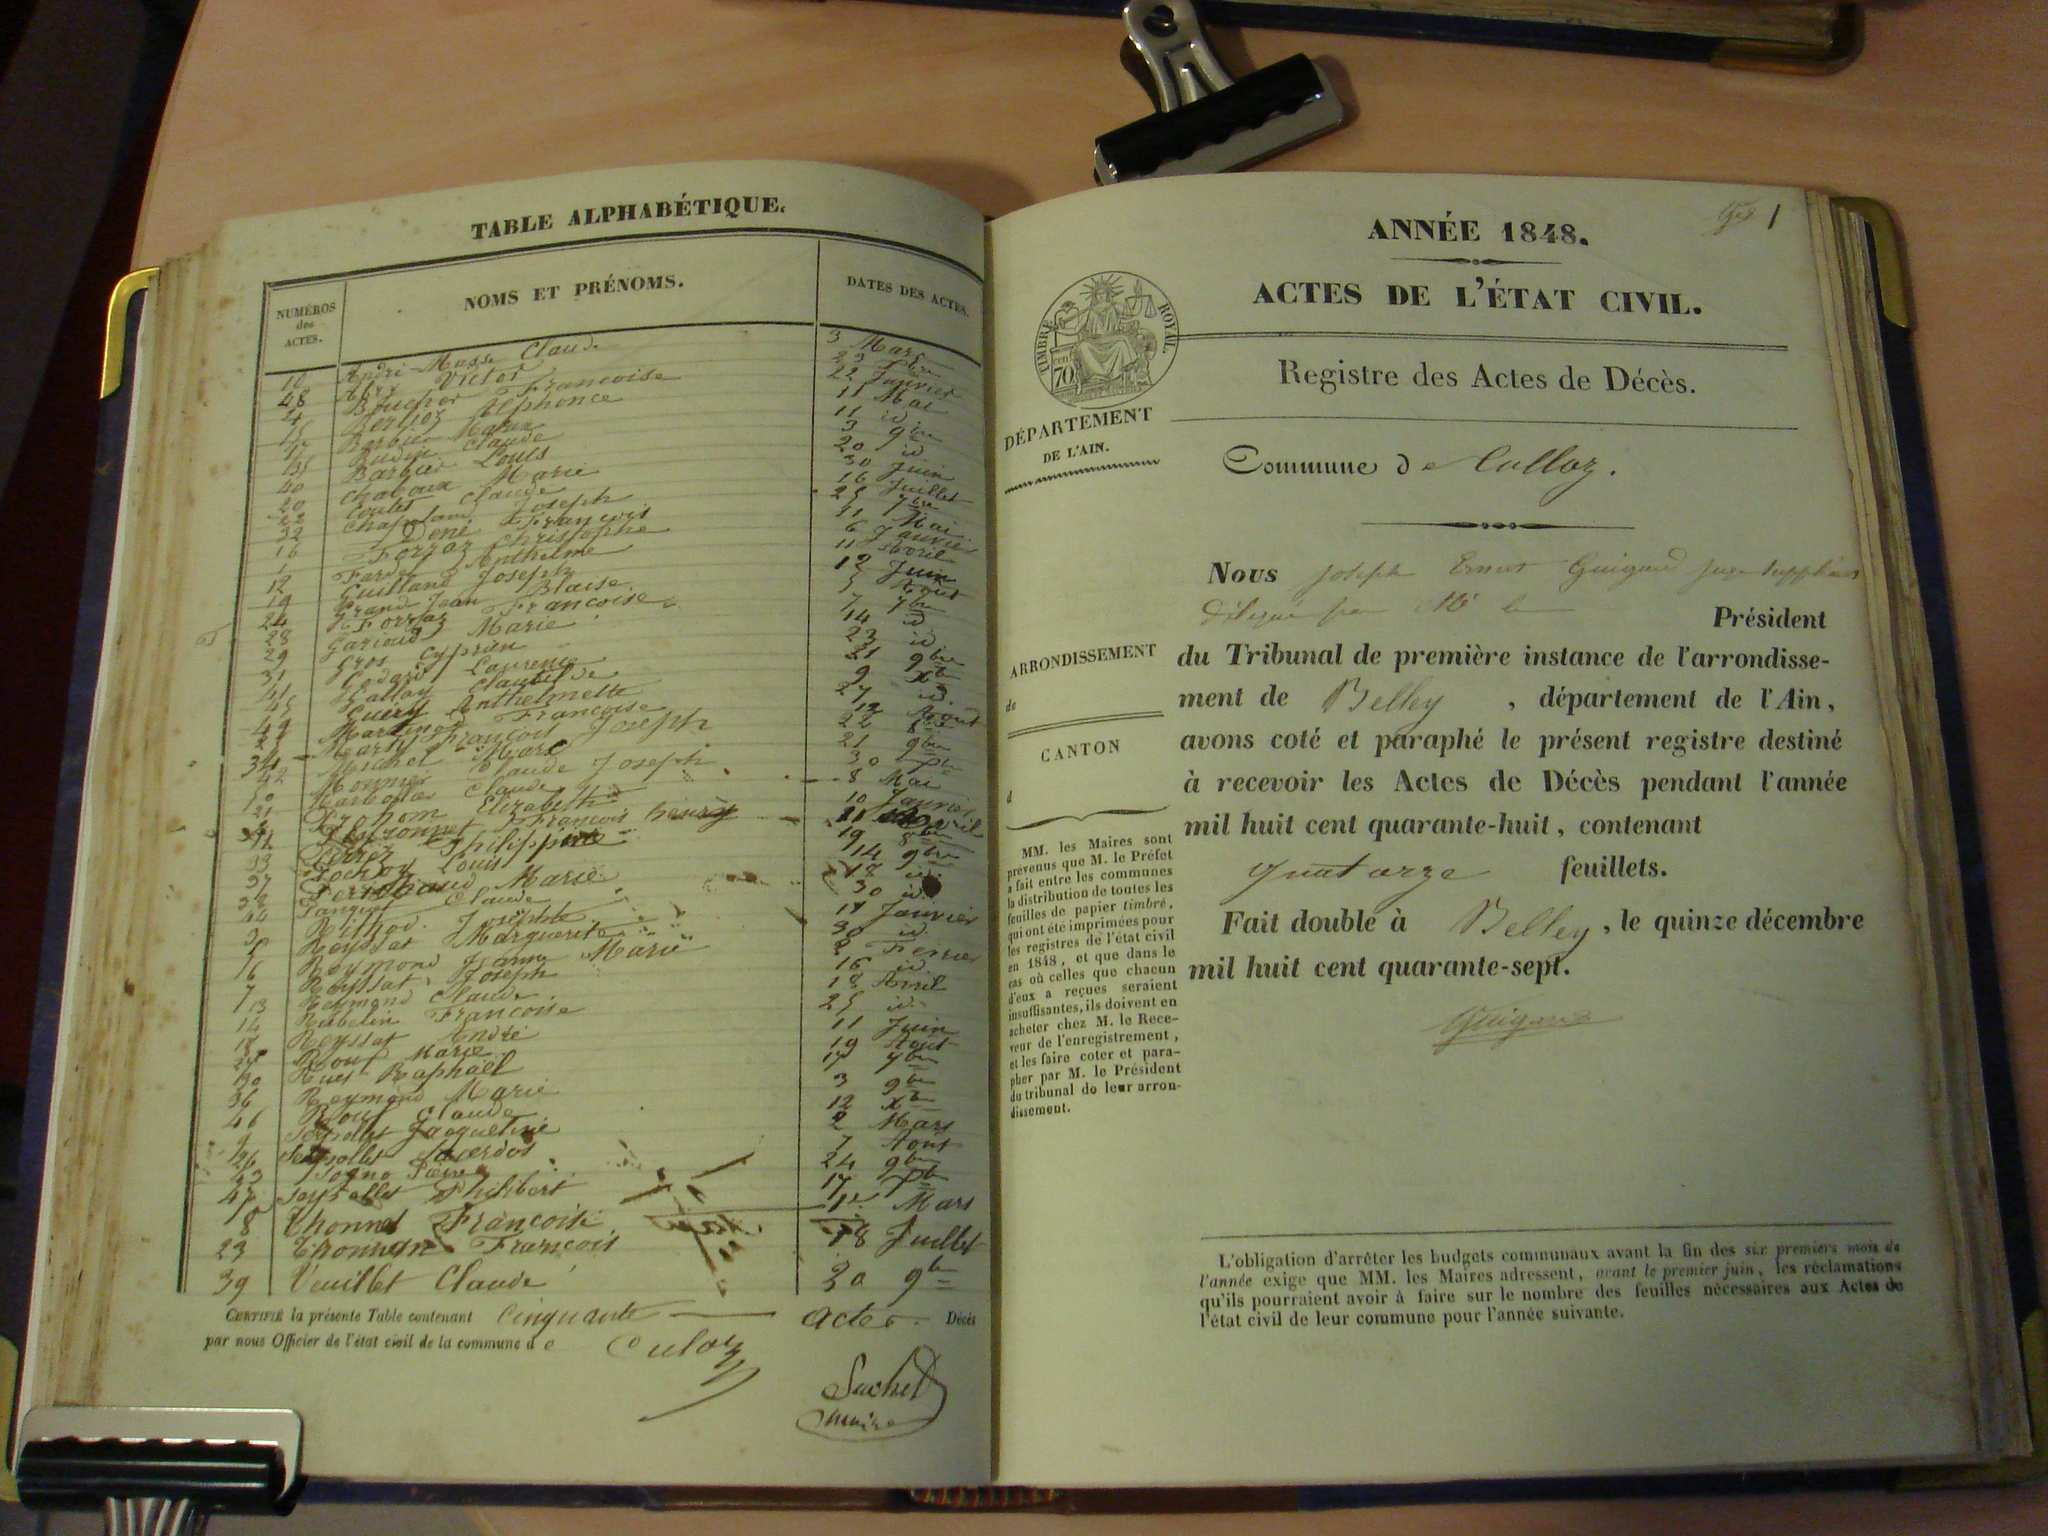 TABLE ALPHABÉTIQUE.
NUMÉROS
des
ACTES.
NOMS ET PRÉNOMS.
DATES DES ACTES.
André Masse Claude 3 Mars
48 Victor
Boucher Françoise 22 Janvier
Berlioz Alphonce 11 Mai
Barbier Maria 11 id
Claude 3 9bre
40 Barbier Louis 20 id
20 Chaboux Marie 30 Juin
22 Coutet Claude 16 Juillet
32 Joseph 25 7bre
16 Dené François 31 Mai
1 Forraz Christophe 6 Janvier
12 Fardel Anthelme 11 Avril
19 Guilland Joseph 12 Juin
24 Grand Jean Blaise 5 Aout
28 Forraz Françoise 7 7bre
29 Garioud Marie 14 id
31 Gros Cyprien 23 id
41 Godard Laurence 21 9bre
45 Hallay Claudide 9 Xbre
49 Guery Anthelmette 27 id
Martinod Françoise 12 Aout
34 Martin François Joseph
42 Michel Marc 21 9bre
Monnier Claude Joseph
Claude 8 Mai
Elizabeth 10 Janvier
François henry Avril
33 Perret Philippine 19 8bre
37 Pochoy Louis 14 9bre
38 Marie 18 id
44 Panquet Claude 30 id
Rithod Josephte 17 Janvier
5 Reyssat Marguerite 30 id
6 Reymond Jeanne Marie 2 Fevrier
7 Reyssat Joseph 16 id
13 Reymond Claude 18 Avril
14 Rubelin Françoise 25 id
18 Reyssat André 11 Juin
27 Marie 19 Aout
30 Raphaël 17 7bre
36 Reymond Marie 3 9bre
46 Claude 12 Xbre
9 Seyssollet Jacqueline 2 Mars
26 Seyssollet 7 Aout
43 Sogno Pierre 24 9bre
47 Philibert 17 Xbre
8 Thonnet Françoise 1er Mars
23 Thonnet François 18 Juillet
39 Veuillet Claude 20 9bre
CERTIFIÉ la présente Table contenant Cinquante Actes. Décès
par nous Officier de l'état civil de la commune de Culoz
Suchet
maire
1
ANNÉE 1848.
ACTES DE L'ÉTAT CIVIL.
TIMBRE ROYAL
cen 70
Registre des Actes de Décès.
DÉPARTEMENT
DE L'AIN.
Commune de Culloz.
Nous Joseph Ernest Guigard juge suppléant
délégué par Mr le Président
ARRONDISSEMENT
de
CANTON
d
du Tribunal de première instance de l'arrondisse-
ment de Belley, département de l'Ain,
avons coté et paraphé le présent registre destiné
à recevoir les Actes de Décès pendant l'année
mil huit cent quarante-huit, contenant
quatorze feuillets.
Fait double à Belley, le quinze décembre
mil huit cent quarante-sept.
Guigard
MM. les Maires sont
prévenus que M. le Préfet
a fait entre les communes
la distribution de toutes les
feuilles de papier timbré,
qui ont été imprimées pour
les registres de l'état civil
en 1848, et que dans le
cas où celles que chacun
d'eux a reçues seraient
insuffisantes, ils doivent en
acheter chez M. le Rece-
veur de l'enregistrement,
et les faire coter et para-
pher par M. le Président
du tribunal de leur arron-
dissement.
L'obligation d'arrêter les budgets communaux avant la fin des six premiers mois de
l'année exige que MM. les Maires adressent, avant le premier juin, les réclamations
qu'ils pourraient avoir à faire sur le nombre des feuilles nécessaires aux Actes de
l'état civil de leur commune pour l'année suivante.